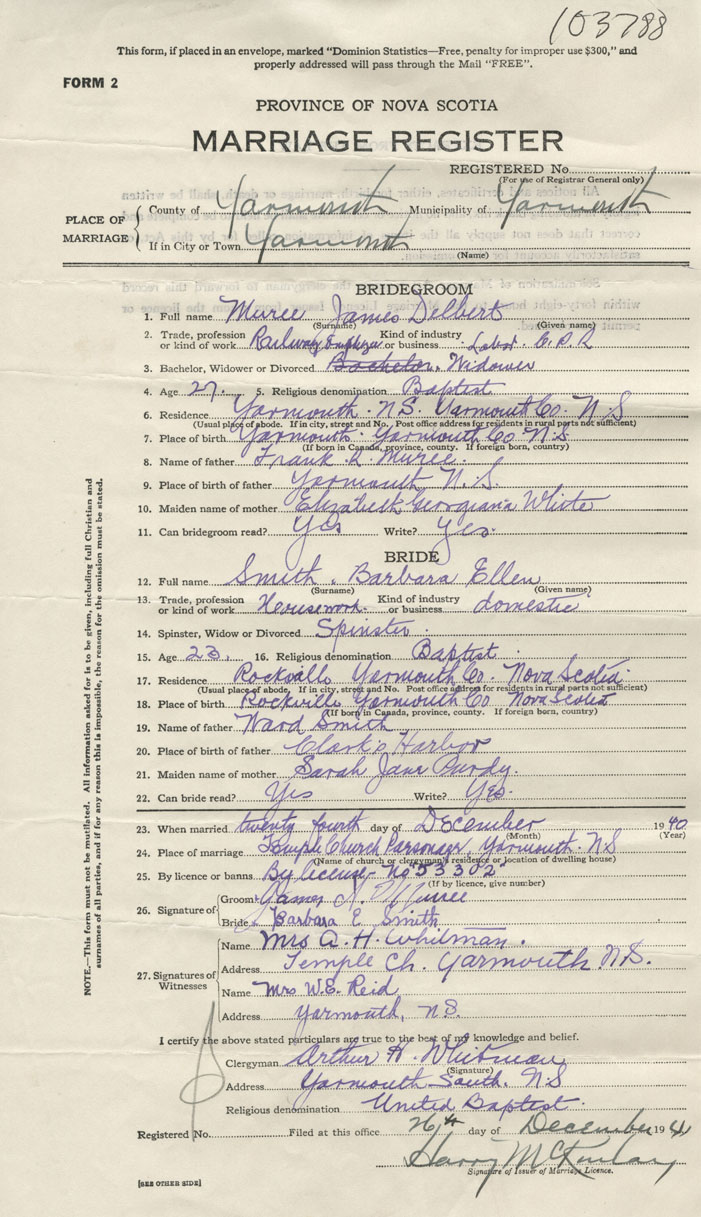 103788
This form, if placed in an envelope, marked "Dominion Statistics—Free, penalty for improper use $300," and
properly addressed will pass through the Mail "FREE".
FORM 2
PROVINCE OF NOVA SCOTIA
MARRIAGE REGISTER
REGISTERED No.
(For use of Registrar General only)
PLACE OF MARRIAGE
County of Yarmouth Municipality of Yarmouth
If in City or Town Yarmouth
(Name)
BRIDEGROOM
1. Full name Muree James Delbert
(Surname) (Given name)
2. Trade, profession or kind of work Railway Employee Kind of industry or business Labor C.P.R
3. Bachelor, Widower or Divorced Bachelor. Widower
4. Age 27. 5. Religious denomination Baptist
6. Residence Yarmouth. N.S. Yarmouth Co. N S
(Usual place of abode. If in city, street and No. Post office address for residents in rural parts not sufficient)
7. Place of birth Yarmouth Yarmouth Co N.S.
(If born in Canada, province, county. If foreign born, country)
8. Name of father Frank R. Muree.
9. Place of birth of father Yarmouth N.S.
10. Maiden name of mother Elizabeth Georgiana White
11. Can bridegroom read? Yes Write? Yes.
BRIDE
12. Full name Smith. Barbara Ellen
(Surname) (Given name)
13. Trade, profession or kind of work Housework. Kind of industry or business domestic
14. Spinster, Widow or Divorced Spinster.
15. Age 23. 16. Religious denomination Baptist.
17. Residence Rockville Yarmouth Co. Nova Scotia
(Usual place of abode. If in city, street and No. Post office address for residents in rural parts not sufficient)
18. Place of birth Rockville Yarmouth Co Nova Scotia
(If born in Canada, province, county. If foreign born, country)
19. Name of father Ward Smith
20. Place of birth of father Clark's Harbor
21. Maiden name of mother Sarah Jane Purdy.
22. Can bride read? Yes Write? Yes.
23. When married twenty fourth day of December 1940
(Month) (Year)
24. Place of marriage Temple Church Parsonage, Yarmouth. NS
(Name of church or clergyman's residence or location of dwelling house)
25. By licence or banns By license No 53302
(If by licence, give number)
26. Signature of
Groom James D. Muree
Bride Barbara E Smith
27. Signatures of Witnesses
Name Mrs A. H. Whitman.
Address Temple Ch. Yarmouth. N.S.
Name Mrs W.E. Reid
Address Yarmouth, N.S.
I certify the above stated particulars are true to the best of my knowledge and belief.
Clergyman Arthur H. Whitman
(Signature)
Address Yarmouth South. N.S
Religious denomination United Baptist.
Registered No. Filed at this office 26th day of December 194
Harry McKinlay
Signature of Issuer of Marriage Licence.
[SEE OTHER SIDE]
NOTE.—This form must not be mutilated. All information asked for is to be given, including full Christian and
surnames of all parties, and if for any reason this is impossible, the reason for the omission must be stated.